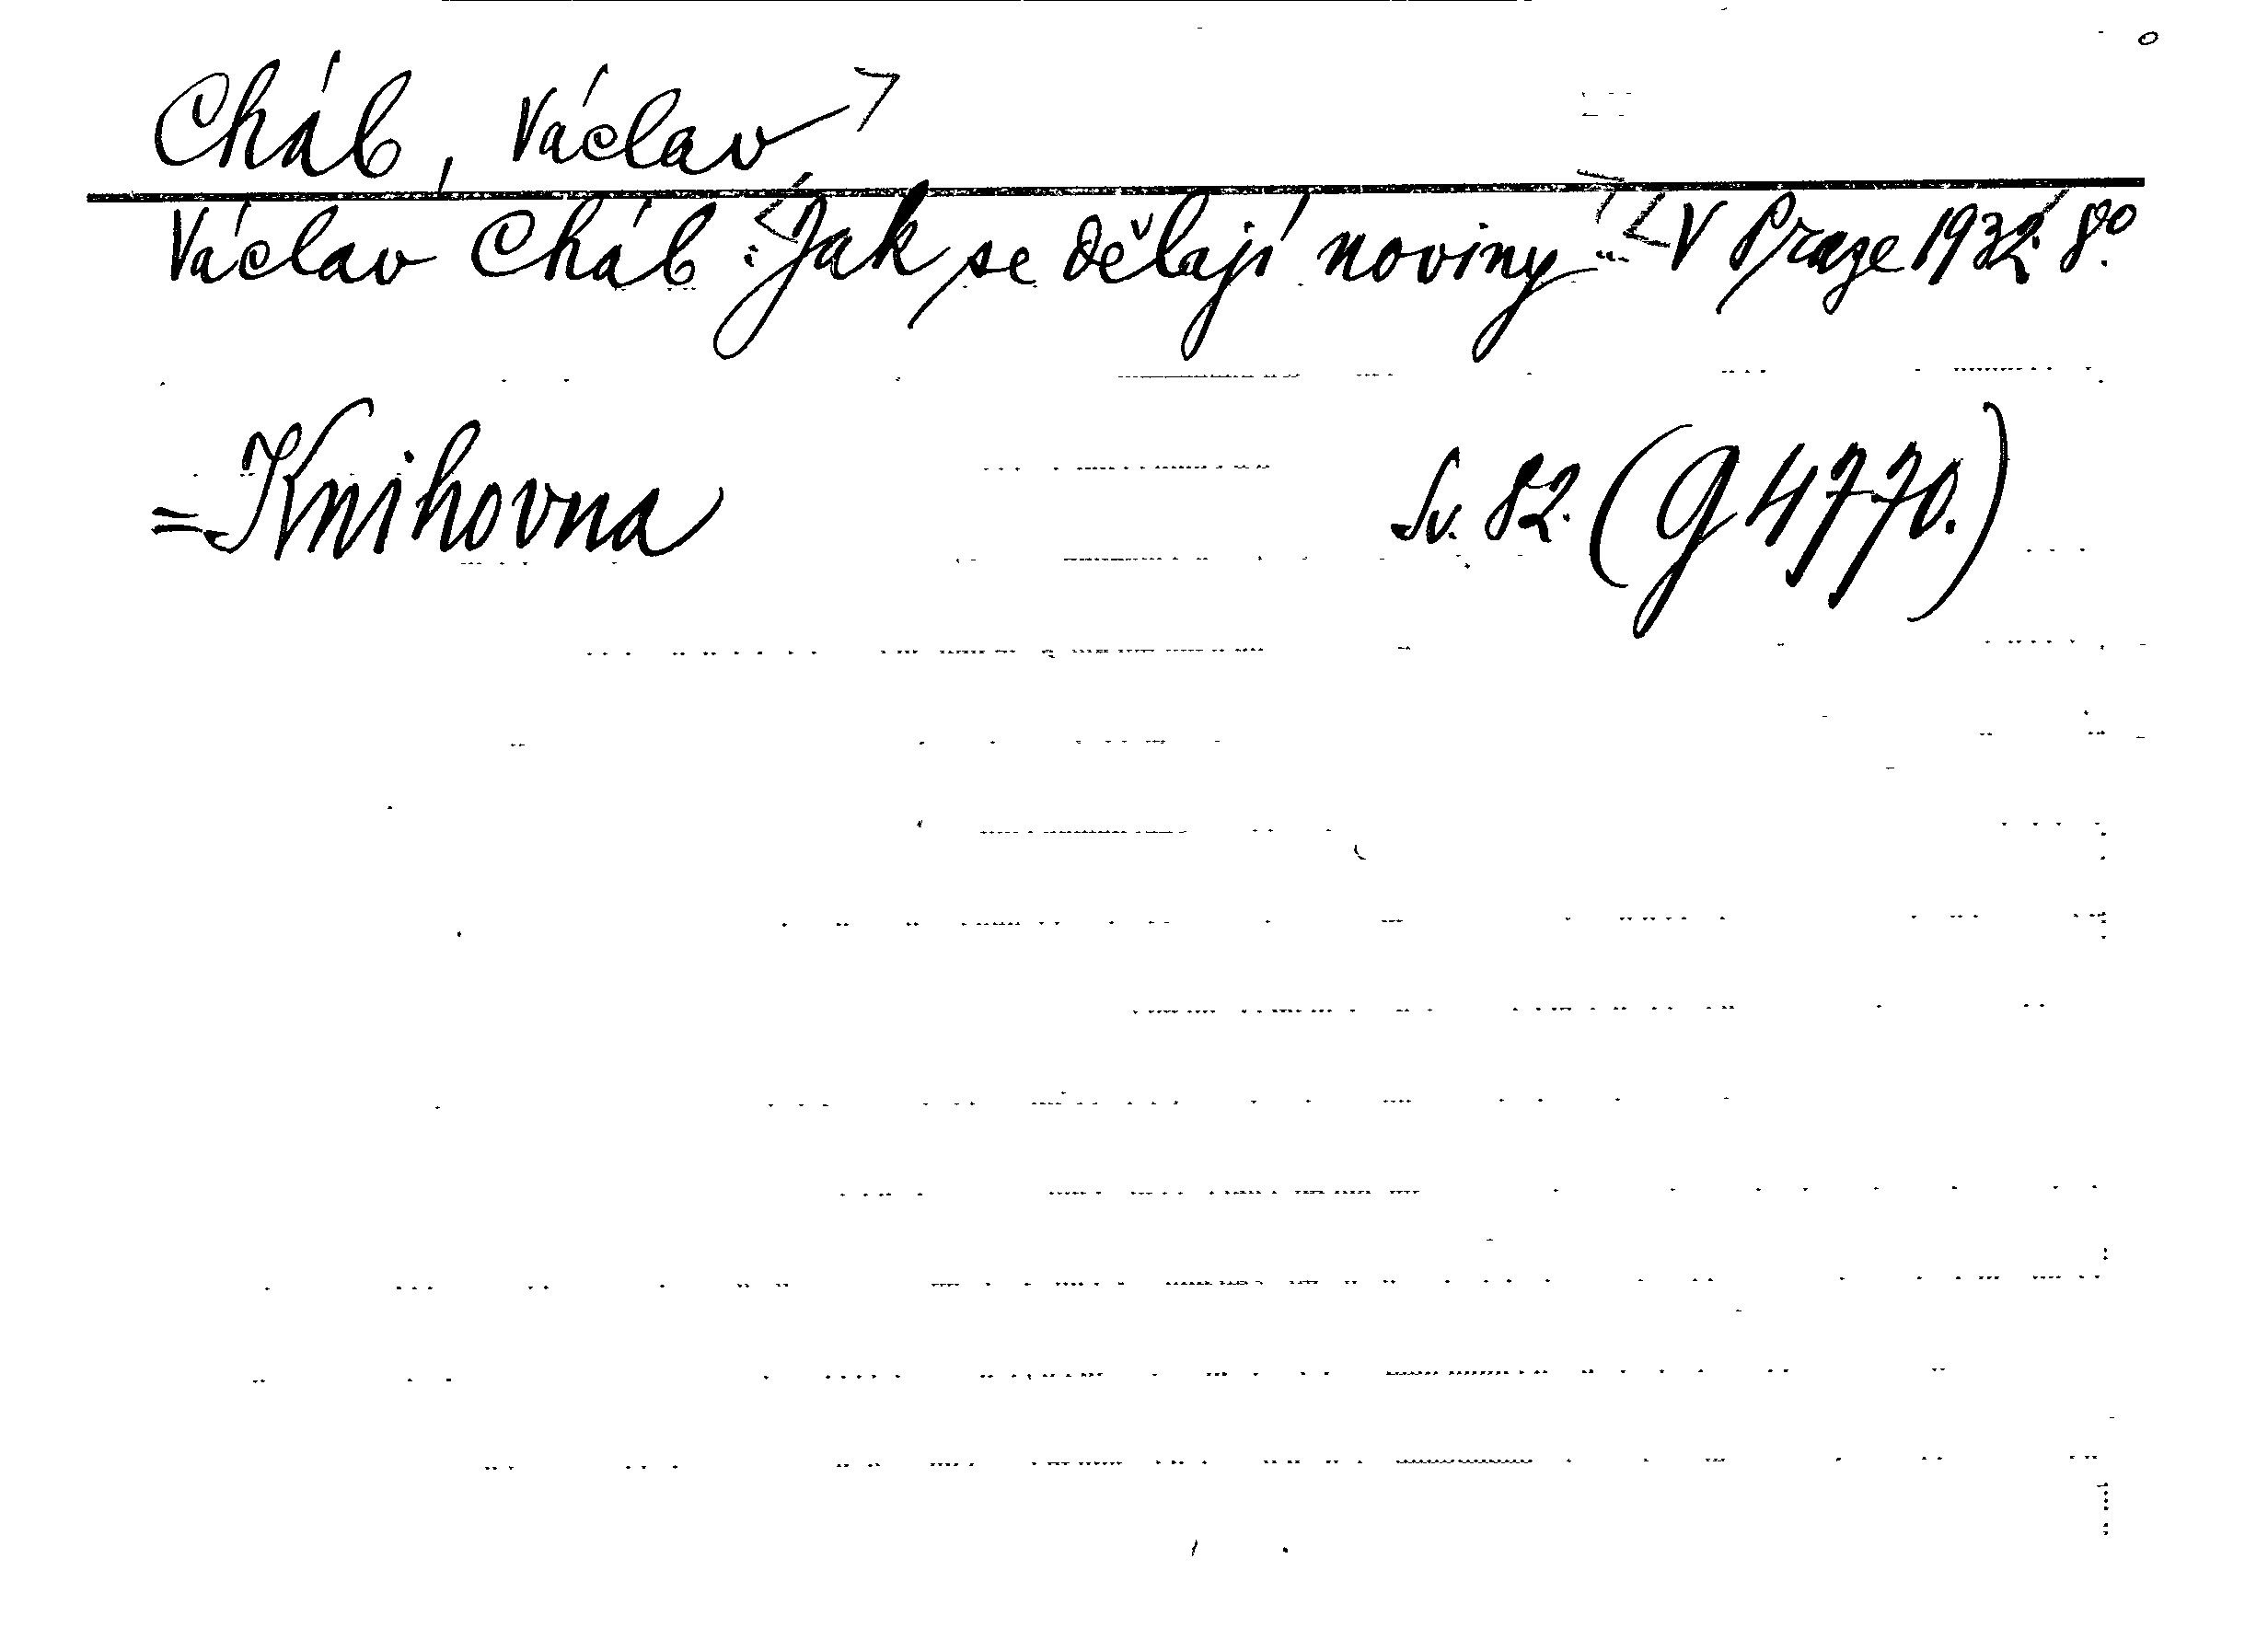 Cháb, Václav
Václav Cháb: Jak se dělají noviny... V Praze 1932. 8°.
= Knihovna Sv. 82. (G 4770.)